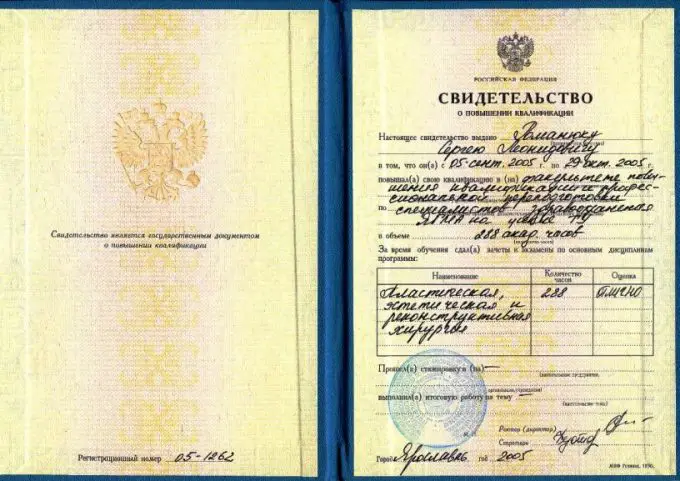 Свидетельство является государственным документом
о повышении квалификации
Регистрационный номер 05-1262
РОССИЙСКАЯ ФЕДЕРАЦИЯ
СВИДЕТЕЛЬСТВО
О ПОВЫШЕНИИ КВАЛИФИКАЦИИ
Настоящее свидетельство выдано Романюку
Сергею Леонидовичу
в том, что он(а) с 05 сент. 2005 г. по 29 окт. 2005 г.
повышал(а) свою квалификацию в (на) факультете повы-
шения квалификации и профес-
сиональной переподготовки
по специалистов здравоохранения
ЯГМА на цикле ТУ
в объеме 288 акад. часов
За время обучения сдал(а) зачеты и экзамены по основным дисциплинам
программы:
Наименование Количество часов Оценка
Пластическая, 288 отлично
эстетическая и
реконструктивная
хирургия
Прошел(а) стажировку в (на) —
(наименование предприятия,
организации, учреждения)
выполнил(а) итоговую работу на тему —
(наименование темы)
Ректор (директор)
М. П.
Секретарь
Город Ярославль год 2005